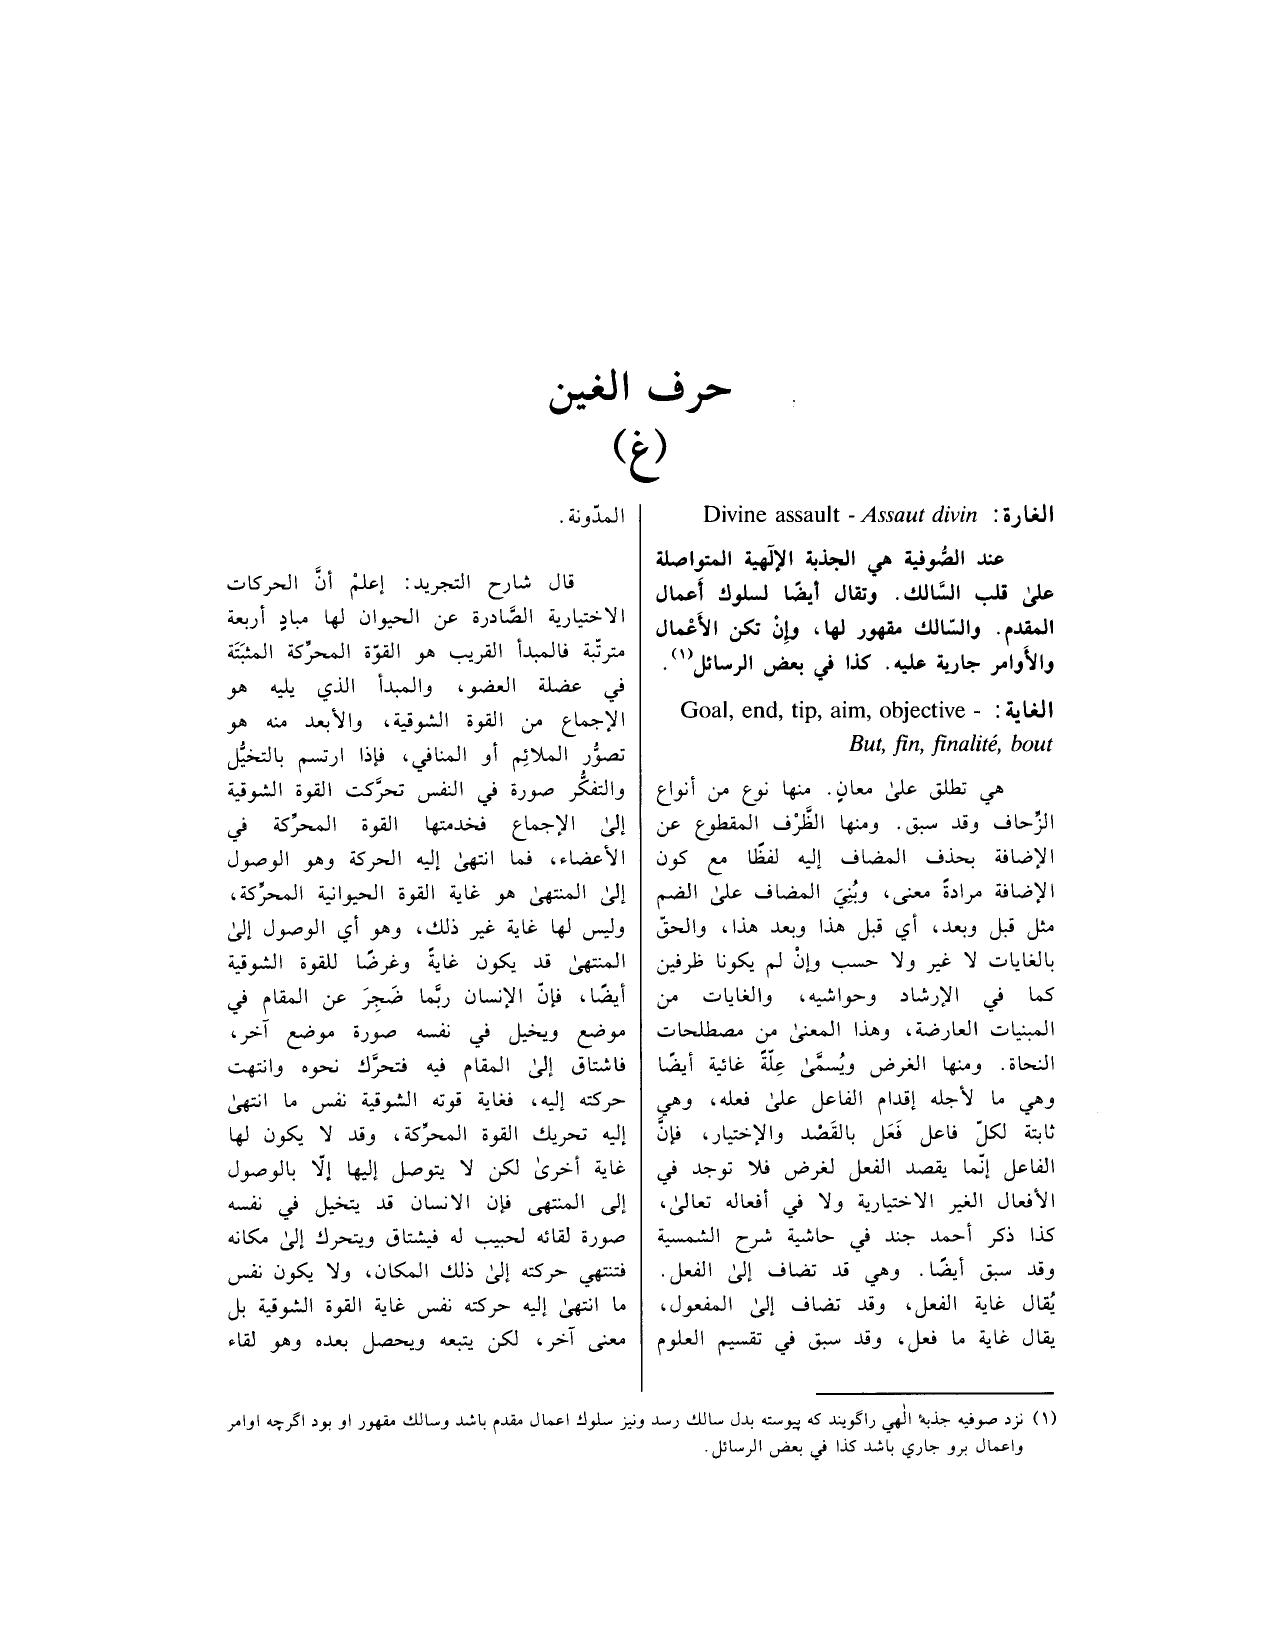 حرف الغين
(غ)
الغارة: Divine assault - Assaut divin
عند الصُّوفية هي الجذبة الإلٓهية المتواصلة
علىٰ قلب السَّالك. وتقال أيضًا لسلوك أعمال
المقدم. والسّالك مقهور لها، وإنْ تكن الأَعْمال
والأوامر جارية عليه. كذا في بعض الرسائل(١).
الغاية: Goal, end, tip, aim, objective -
But, fin, finalité, bout
هي تطلق علىٰ معانٍ. منها نوع من أنواع
الزِّحاف وقد سبق. ومنها الظَّرْف المقطوع عن
الإضافة بحذف المضاف إليه لفظًا مع كون
الإضافة مرادةً معنى، وبُنِيَ المضاف علىٰ الضم
مثل قبل وبعد، أي قبل هذا وبعد هذا، والحقّ
بالغايات لا غير ولا حسب وإنْ لم يكونا ظرفين
كما في الإرشاد وحواشيه، والغايات من
المبنيات العارضة، وهذا المعنىٰ من مصطلحات
النحاة. ومنها الغرض ويُسمَّىٰ عِلّةً غائية أيضًا
وهي ما لأجله إقدام الفاعل علىٰ فعله، وهي
ثابتة لكلّ فاعل فَعَل بالقَصْد والإختيار، فإنَّ
الفاعل إنّما يقصد الفعل لغرض فلا توجد في
الأفعال الغير الاختيارية ولا في أفعاله تعالىٰ،
كذا ذكر أحمد جند في حاشية شرح الشمسية
وقد سبق أيضًا. وهي قد تضاف إلىٰ الفعل.
يُقال غاية الفعل، وقد تضاف إلىٰ المفعول،
يقال غاية ما فعل، وقد سبق في تقسيم العلوم
المدّونة.
قال شارح التجريد: إعلمْ أنَّ الحركات
الاختيارية الصَّادرة عن الحيوان لها مبادٍ أربعة
مترتّبة فالمبدأ القريب هو القوّة المحرِّكة المثبَتَة
في عضلة العضو، والمبدأ الذي يليه هو
الإجماع من القوة الشوقية، والأبعد منه هو
تصوُّر الملائِم أو المنافي، فإذا ارتسم بالتخيُّل
والتفكُّر صورة في النفس تحرَّكت القوة الشوقية
إلىٰ الإجماع فخدمتها القوة المحرِّكة في
الأعضاء، فما انتهىٰ إليه الحركة وهو الوصول
إلىٰ المنتهىٰ هو غاية القوة الحيوانية المحرِّكة،
وليس لها غاية غير ذلك، وهو أي الوصول إلىٰ
المنتهىٰ قد يكون غايةً وغرضًا للقوة الشوقية
أيضًا، فإنّ الإنسان ربَّما ضَجِرَ عن المقام في
موضع ويخيل في نفسه صورة موضع آخر،
فاشتاق إلىٰ المقام فيه فتحرَّك نحوه وانتهت
حركته إليه، فغاية قوته الشوقية نفس ما انتهىٰ
إليه تحريك القوة المحرِّكة، وقد لا يكون لها
غاية أخرىٰ لكن لا يتوصل إليها إلّا بالوصول
إلى المنتهى فإن الانسان قد يتخيل في نفسه
صورة لقائه لحبيب له فيشتاق ويتحرك إلىٰ مكانه
فتنتهي حركته إلىٰ ذلك المكان، ولا يكون نفس
ما انتهىٰ إليه حركته نفس غاية القوة الشوقية بل
معنى آخر، لكن يتبعه ويحصل بعده وهو لقاء
(١) نزد صوفيه جذبهٔ الٰهي راگويند كه پيوسته بدل سالك رسد ونيز سلوك اعمال مقدم باشد وسالك مقهور او بود اگرچه اوامر
واعمال برو جاري باشد كذا في بعض الرسائل.